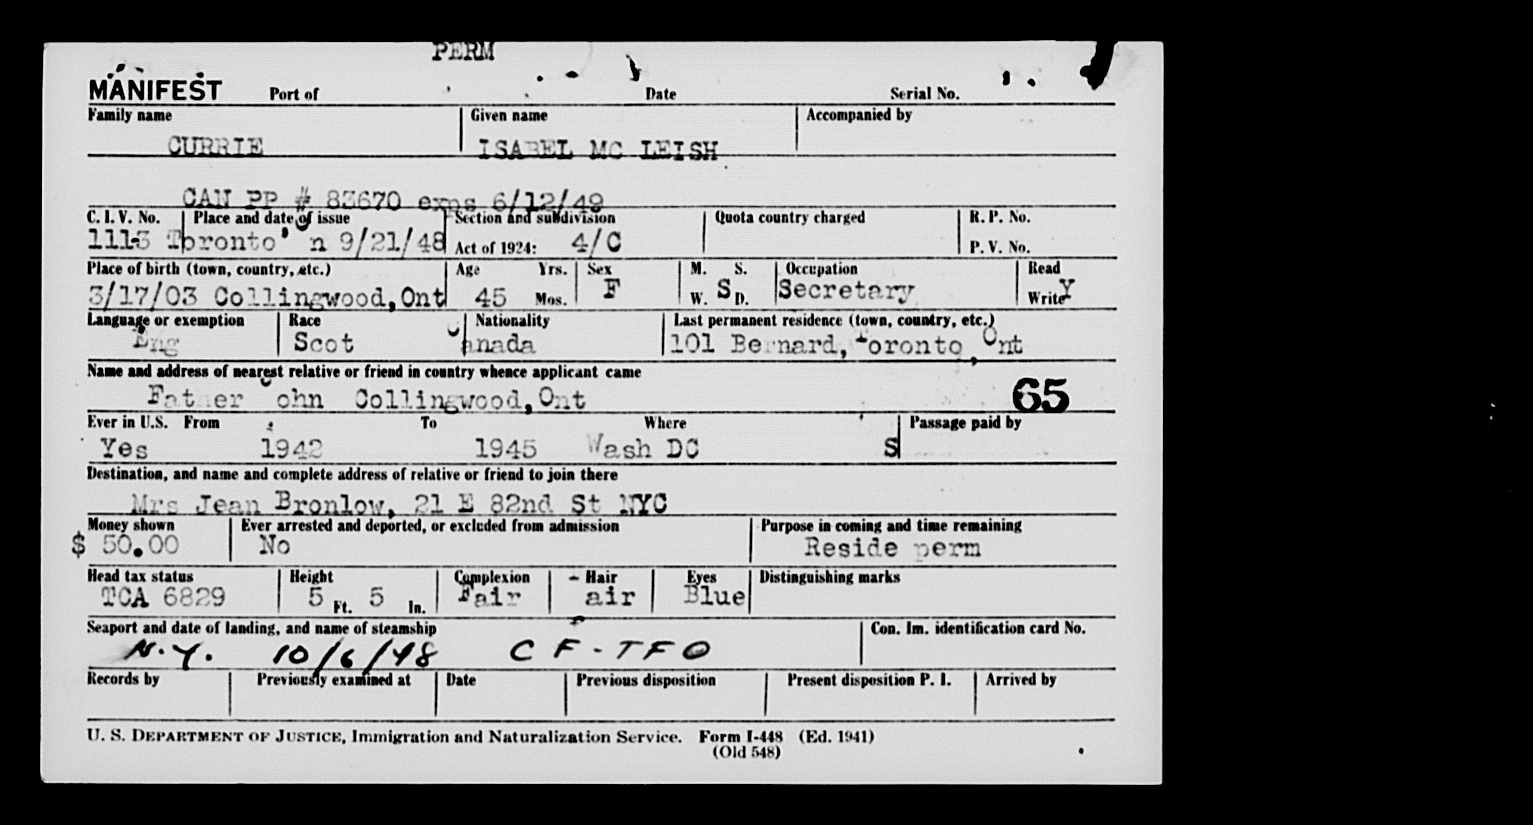 PERM
MANIFEST Port of Date Serial No.
Family name Given name Accompanied by
CURRIE ISABEL MC LEISH
CAN PP # 83670 exps 6/12/49
C. I. V. No. Place and date of issue Section and subdivision Quota country charged R. P. No.
1113 Toronto n 9/21/48 Act of 1924: 4/C P. V. No.
Place of birth (town, country, etc.) Age Yrs. Sex M. S. Occupation Read
3/17/03 Collingwood, Ont 45 Mos. F W. S D. Secretary Write Y
Language or exemption Race Nationality Last permanent residence (town, country, etc.)
Eng Scot Canada 101 Bernard, Toronto, Ont
Name and address of nearest relative or friend in country whence applicant came
Father ohn Collingwood, Ont 65
Ever in U.S. From To Where Passage paid by
Yes 1942 1945 Wash DC S
Destination, and name and complete address of relative or friend to join there
Mrs Jean Bronlow, 21 E 82nd St NYC
Money shown Ever arrested and deported, or excluded from admission Purpose in coming and time remaining
$ 50.00 No Reside perm
Head tax status Height Complexion Hair Eyes Distinguishing marks
TCA 6829 5 Ft. 5 In. Fair air Blue
Seaport and date of landing, and name of steamship Con. Im. identification card No.
N.Y. 10/6/48 C F - T F O
Records by Previously examined at Date Previous disposition Present disposition P. I. Arrived by
U. S. DEPARTMENT OF JUSTICE, Immigration and Naturalization Service. Form I-448 (Ed. 1941)
(Old 548)